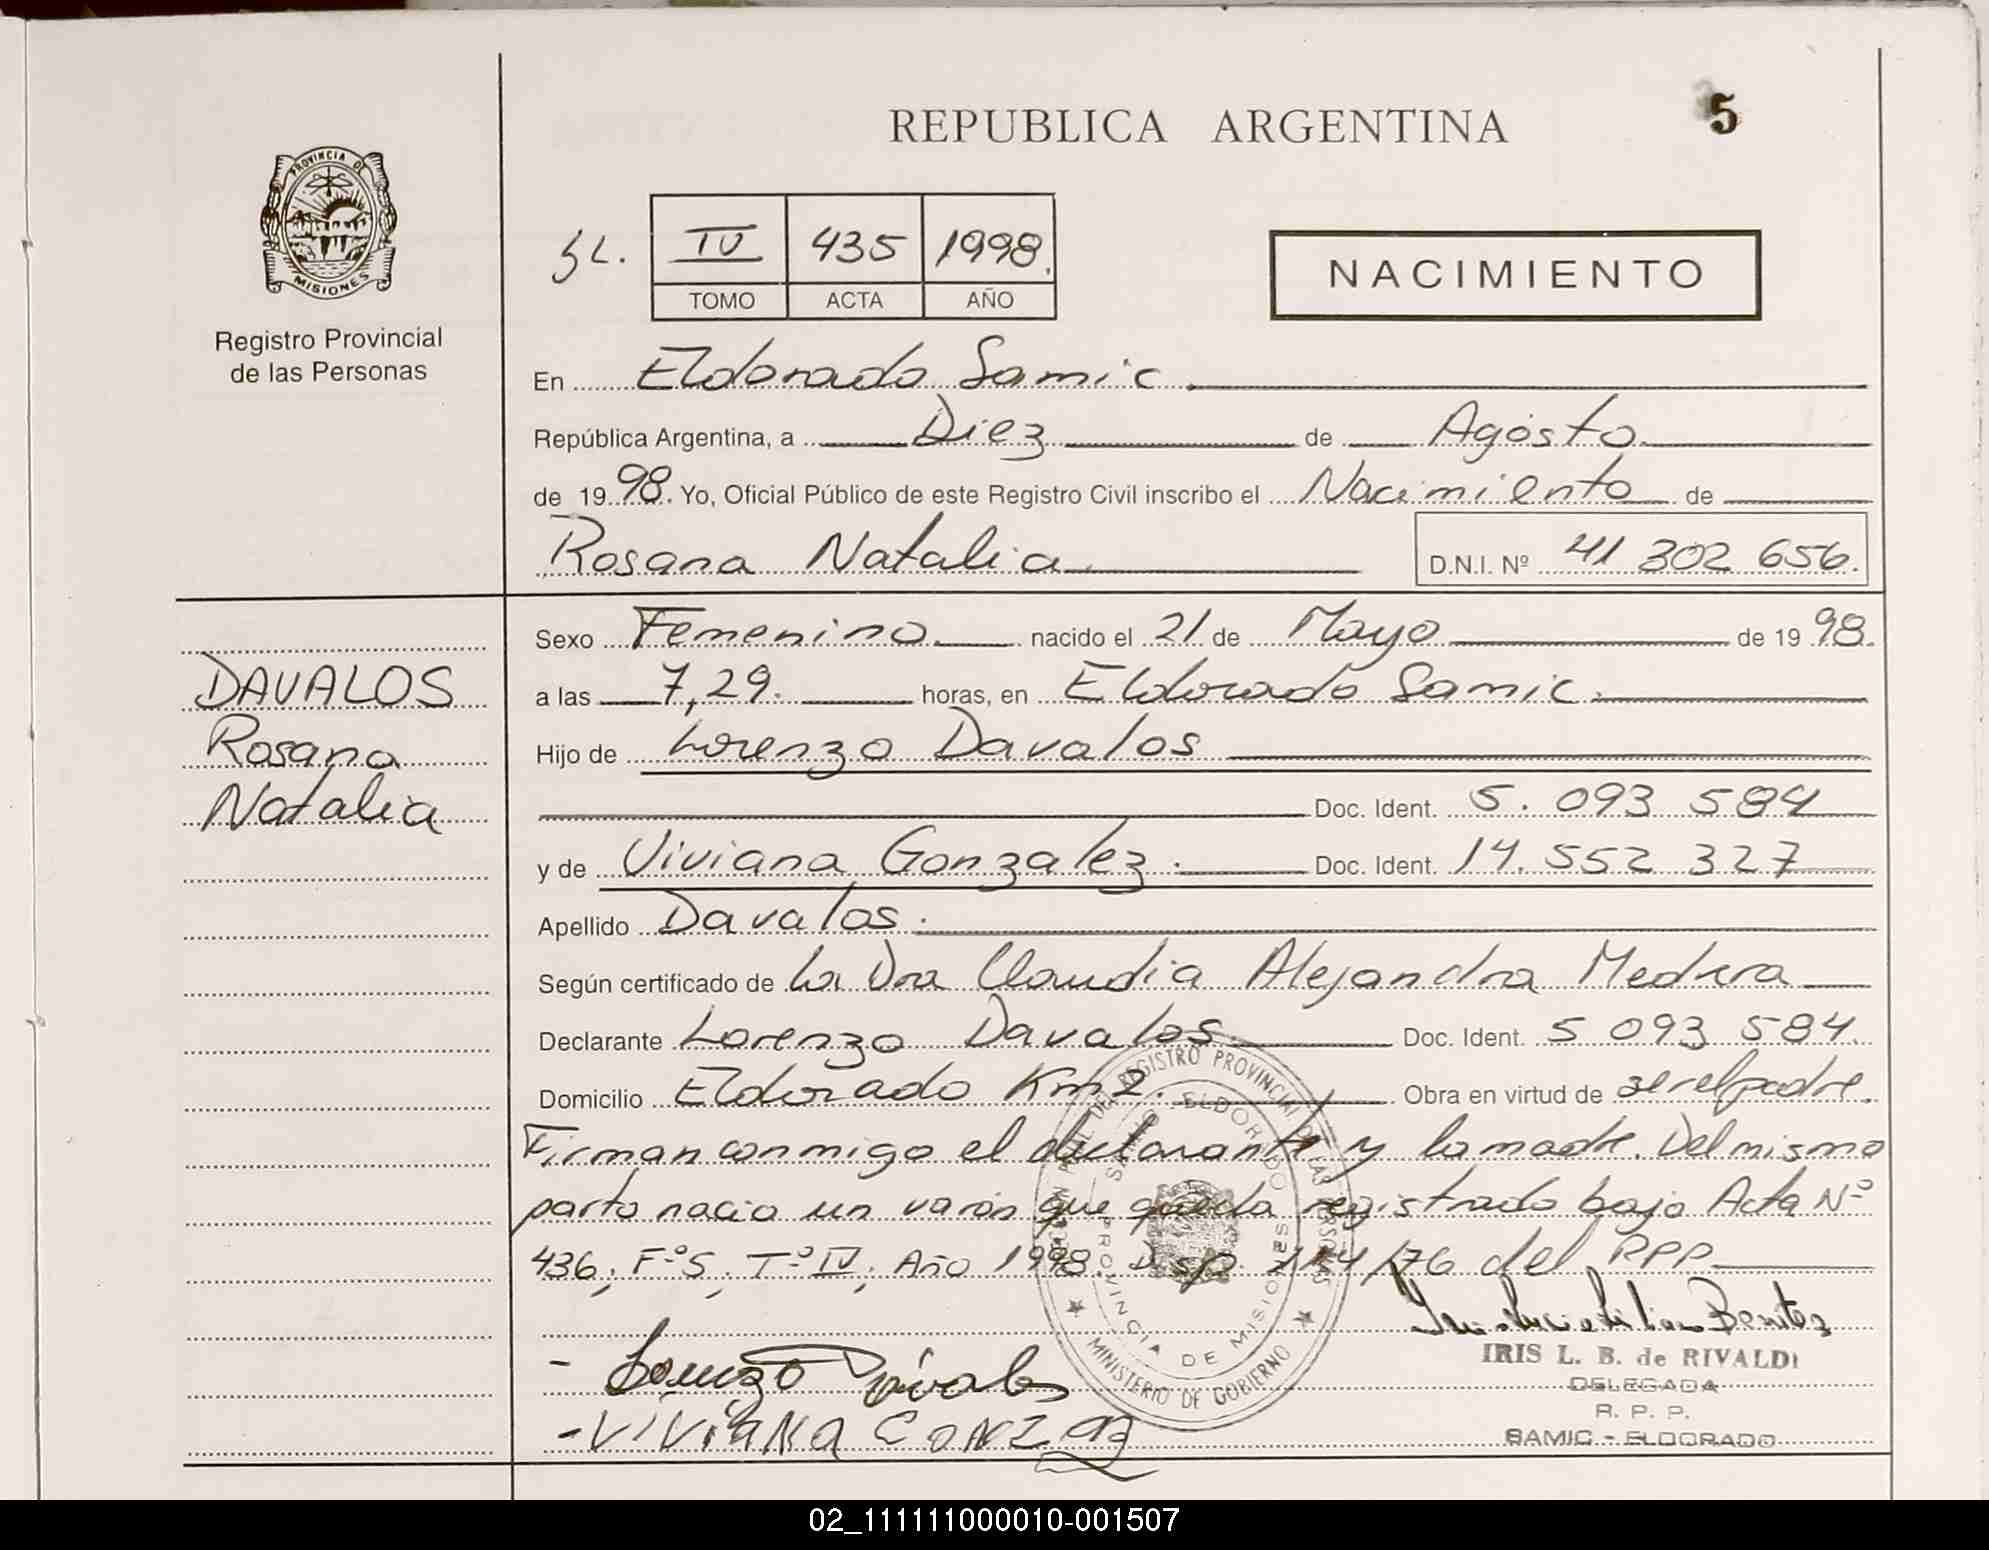 REPUBLICA ARGENTINA
5
PROVINCIA DE
MISIONES
Registro Provincial
de las Personas
IV 435 1998.
TOMO ACTA AÑO
NACIMIENTO
En Eldorado Samic
República Argentina, a Diez de Agosto
de 1998. Yo, Oficial Público de este Registro Civil inscribo el Nacimiento de
Rosana Natalia
D.N.I. Nº 41 302 656.
DAVALOS
Rosana
Natalia
Sexo Femenino nacido el 21 de Mayo de 1998.
a las 7,29. horas, en Eldorado Samic.
Hijo de Lorenzo Davalos
Doc. Ident. 5.093 584
y de Viviana Gonzalez. Doc. Ident. 14.552 327
Apellido Davalos.
Según certificado de La Dra Claudia Alejandra Medera
Declarante Lorenzo Davalos Doc. Ident. 5 093 584.
Domicilio Eldorado Km 2. Obra en virtud de ser el padre.
Firman conmigo el declarante y la madre. Del mismo
parto nacio un varón que queda registrado bajo Acta Nº
436, Fº 5, Tº IV, Año 1998. Disp /76 del RPP
Benitez
Lorenzo Dávalos
IRIS L. B. de RIVALDI
DELEGADA
R. P. P.
SAMIC - ELDORADO
-VIVIANA
REGISTRO PROVINCIAL DE LAS PERSONAS
SAMIC ELDORADO
PROVINCIA DE MISIONES
MINISTERIO DE GOBIERNO
02_111111000010-001507